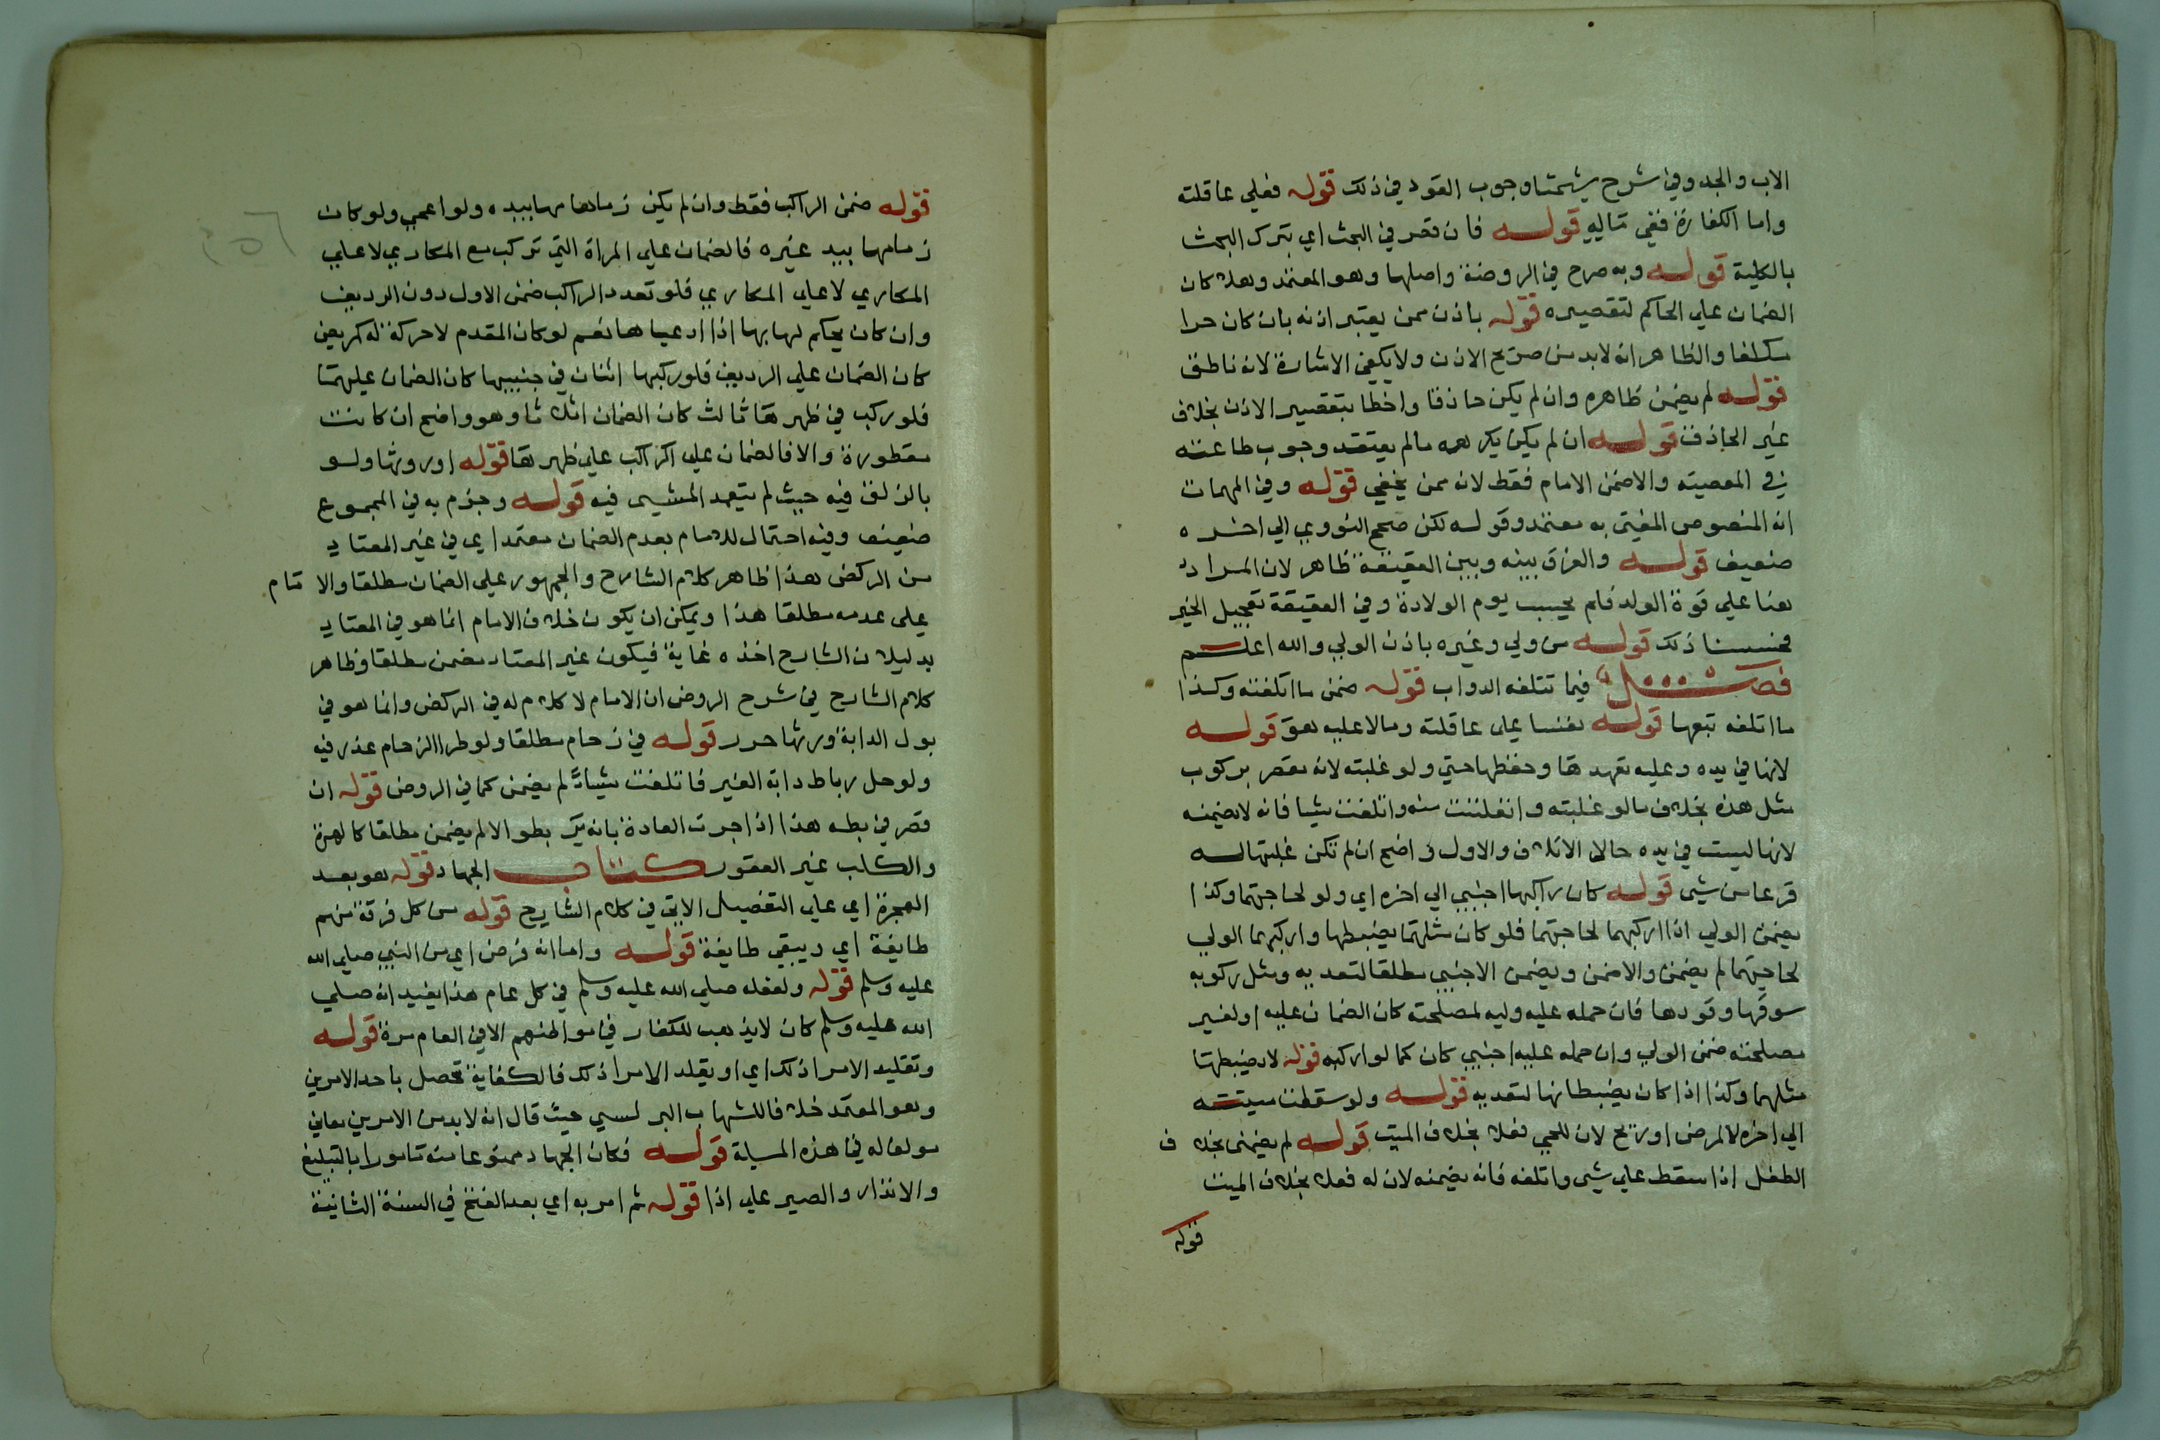 الاب والجد وفي شرح شيخنا وجوب القود في ذلك قوله فعلي عاقلته
واما الكفارة ففي ماله قوله فان قصر في البحث اي بترك البحث
بالكلية قوله وبه صرح في الروضة واصلها وهو المعتمد وهل كان
الضمان علي الحاكم لتقصيره قوله باذن ممن يعتبر اذنه بان كان حرا
مكلفا والظاهر انه لابد من صريح الاذن ولا يكفي الاشارة لانه ناطق
قوله لم يضمن ظاهره وان لم يكن حاذقا واخطا بتقصير الاذن بخلاف
غير الحاذق قوله ان لم يكن يكرهه مالم يعتقد وجوب طاعته
في المعصيته والاضمن الامام فقط لانه ممن يخفي قوله وفي المهمات
انه المنصوص المفتي به معتمد وقوله لكن صحح النووي الي اخره
ضعيف قوله والفرق بينه وبين العقيقة ظاهر لان المراد
هنا علي قوة الولد فلم يحسب يوم الولادة وفي العقيقة تعجيل الخير
فحسبنا ذلك قوله من ولي وغيره باذن الولي والله اعلم
فصل فيما تتلفه الدواب قوله ضمن ما اتلفته وكذا
ما اتلفه تبعها قوله نفسا علي عاقلته ومالا عليه هو قوله
لانها في يده وعليه تعهدها وحفظها حتي ولو غلبته لانه مقصر بركوب
مثل هذه بخلاف مالو غلبته وانفلتت منه واتلفت شيا فانه لا يضمنه
لانها ليست في يده حال الاتلاف والاول واضح ان لم تكن غلبتها له
فزعا من شي قوله كان راكبها اجنبي الي اخره اي ولو لحاجتهما وكذا
يضمن الولي اذا اركبهما لحاجتهما فلو كان مثلهما يضبطها واركبهما الولي
لحاجتهما لم يضمن والاضمن ويضمن الاجنبي مطلقا لتعديه ومثل ركوبه
سوقها وقودها فان حمله عليه وليه لمصلحته كان الضمان عليه او لغير
مصلحته ضمن الولي وان حمله عليه اجنبي كان كما لو اركبه قوله لا يضبطها
مثلهما وكذا اذا كان يضبطانها لتعديه قوله ولو سقطت ميتة
الي اخره لا لمرض او ريح لان للحي فعلا بخلاف الميت قوله لم يضمن بخلاف
الطفل اذا سقط علي شي واتلفه فانه يضمنه لان له فعلا بخلاف الميت
قوله
قوله ضمن الراكب فقط وان لم يكن زمامها بيده ولو اعمي ولو كان
زمامها بيد غيره فالضمان علي المراة التي تركب مع المكاري لا علي
المكاري لا علي المكاري فلو تعدد الراكب ضمن الاول دون الرديف
وان كان يحكم لهما بها اذا ادعياها نعم لو كان المقدم لا حركة له كمريض
كان الضمان علي الرديف فلو ركبها اثنان في جنبيها كان الضمان عليهما
فلو ركب في ظهرها ثالث كان الضمان اثلاثا وهو واضح ان كانت
مقطورة والا فالضمان علي الراكب علي ظهرها قوله او روثها ولو
بالزلق فيه حيث لم يتعمد المشي فيه قوله وجزم به في المجموع
ضعيف وفيه احتمال للامام بعدم الضمان معتمد اي في غير المعتاد
من الركض هذا ظاهر كلام الشارح والجمهور علي الضمان مطلقا والامام
علي عدمه مطلقا هذا ويمكن ان يكون خلاف الامام انما هو في المعتاد
بدليل ان الشارح اخذه غاية فيكون غير المعتاد مضمن مطلقا وظاهر
كلام الشارح في شرح الروض ان الامام لا كلام له في الركض وانما هو في
بول الدابة وروثها حرر قوله في زحام مطلقا ولو طرا الزحام عذر فيه
ولو حل رباط دابة الغير فاتلفت شيا لم يضمن كما في الروض قوله ان
قصر في ربطه هذا اذا جرت العادة بانه يربط والالم يضمن مطلقا كالهرة
والكلب غير العقور كتاب الجهاد قوله هو بعد
الهجرة اي علي التفصيل الاتي في كلام الشارح قوله من كل فرقة منهم
طايفة اي ويبقي طايفة قوله واما انه فرض اي من النبي صلي الله
عليه وسلم قوله ولفعله صلي الله عليه وسلم في كل عام هذا يفيد انه صلي
الله عليه وسلم كان لايذهب للكفار في مواطنهم الافي العام مرة قوله
وتقليد الامراء ذلك اي او يقلد الامراء ذلك فالكفاية تحصل باحد الامرين
وهو المعتمد خلافا للشهاب البرلسي حيث قال انه لابد من الامرين
في هذه المسيلة قوله فكان الجهاد ممنوعا منه مامورا بالتبليغ
والانذار والصبر علي اذا قوله ثم امر به اي بعد الفتح في السنة الثانية